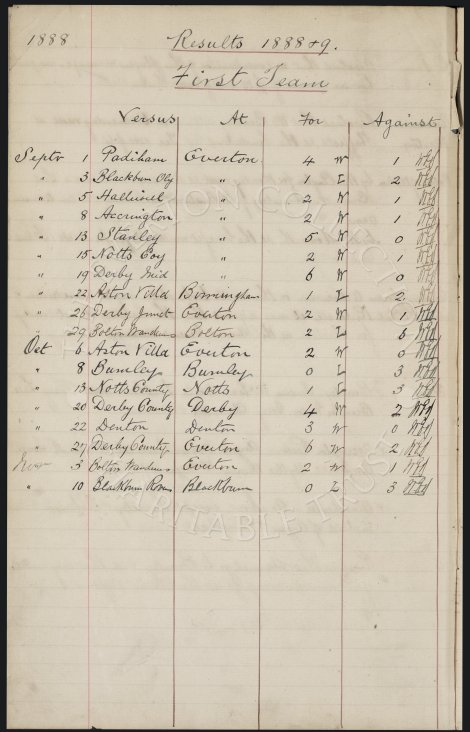 1888 Results 1888+9.
First Team
Versus At For Against
Septr 1 Padiham Everton 4 W 1
" 3 Blackburn Oly " 1 L 2
" 5 Halliwell " 2 W 1
" 8 Accrington " 2 W 1
" 13 Stanley " 5 W 0
" 15 Notts Coy " 2 W 1
" 19 Derby Mid " 6 W 0
" 22 Aston Villa Birmingham 1 L 2
" 26 Derby Junct Everton 2 W 1
" 29 Bolton Wandrers Bolton 2 L 6
Oct 6 Aston Villa Everton 2 W 0
" 8 Burnley Burnley 0 L 3
" 13 Notts County Notts 1 L 3
" 20 Derby County Derby 4 W 2
" 22 Denton Denton 3 W 0
" 27 Derby County Everton 6 W 2
Nov 3 Bolton Wandrers Everton 2 W 1
" 10 Blackburn Rovers Blackburn 0 L 3
EVERTON COLLECTION
CHARITABLE TRUST